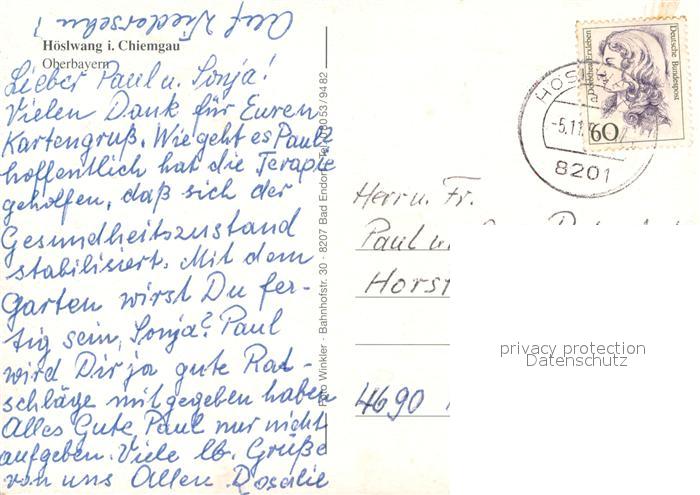 Auf Wiedersehn!
Höslwang i. Chiemgau
Oberbayern
Lieber Paul u. Sonja!
Vielen Dank für Euren
Kartengruß. Wie geht es Paul?
hoffentlich hat die Terapie
geholfen, daß sich der
Gesundheitszustand
stabilisiert. Mit dem
Garten wirst Du fer-
tig sein, Sonja? Paul
wird Dir ja gute Rat-
schläge mitgegeben haben
Alles Gute Paul nur nicht
aufgeben. Viele lb. Grüße
von uns Allen Rosalie
Foto Winkler - Bahnhofstr. 30 - 8207 Bad Endorf - Tel. 0 80 53 / 94 82
Deutsche Bundespost
Dorothea Erxleben
60
HÖSL
-5.11.
8201
Herrn u. Fr.
Paul u.
Horst
4690
privacy protection
Datenschutz